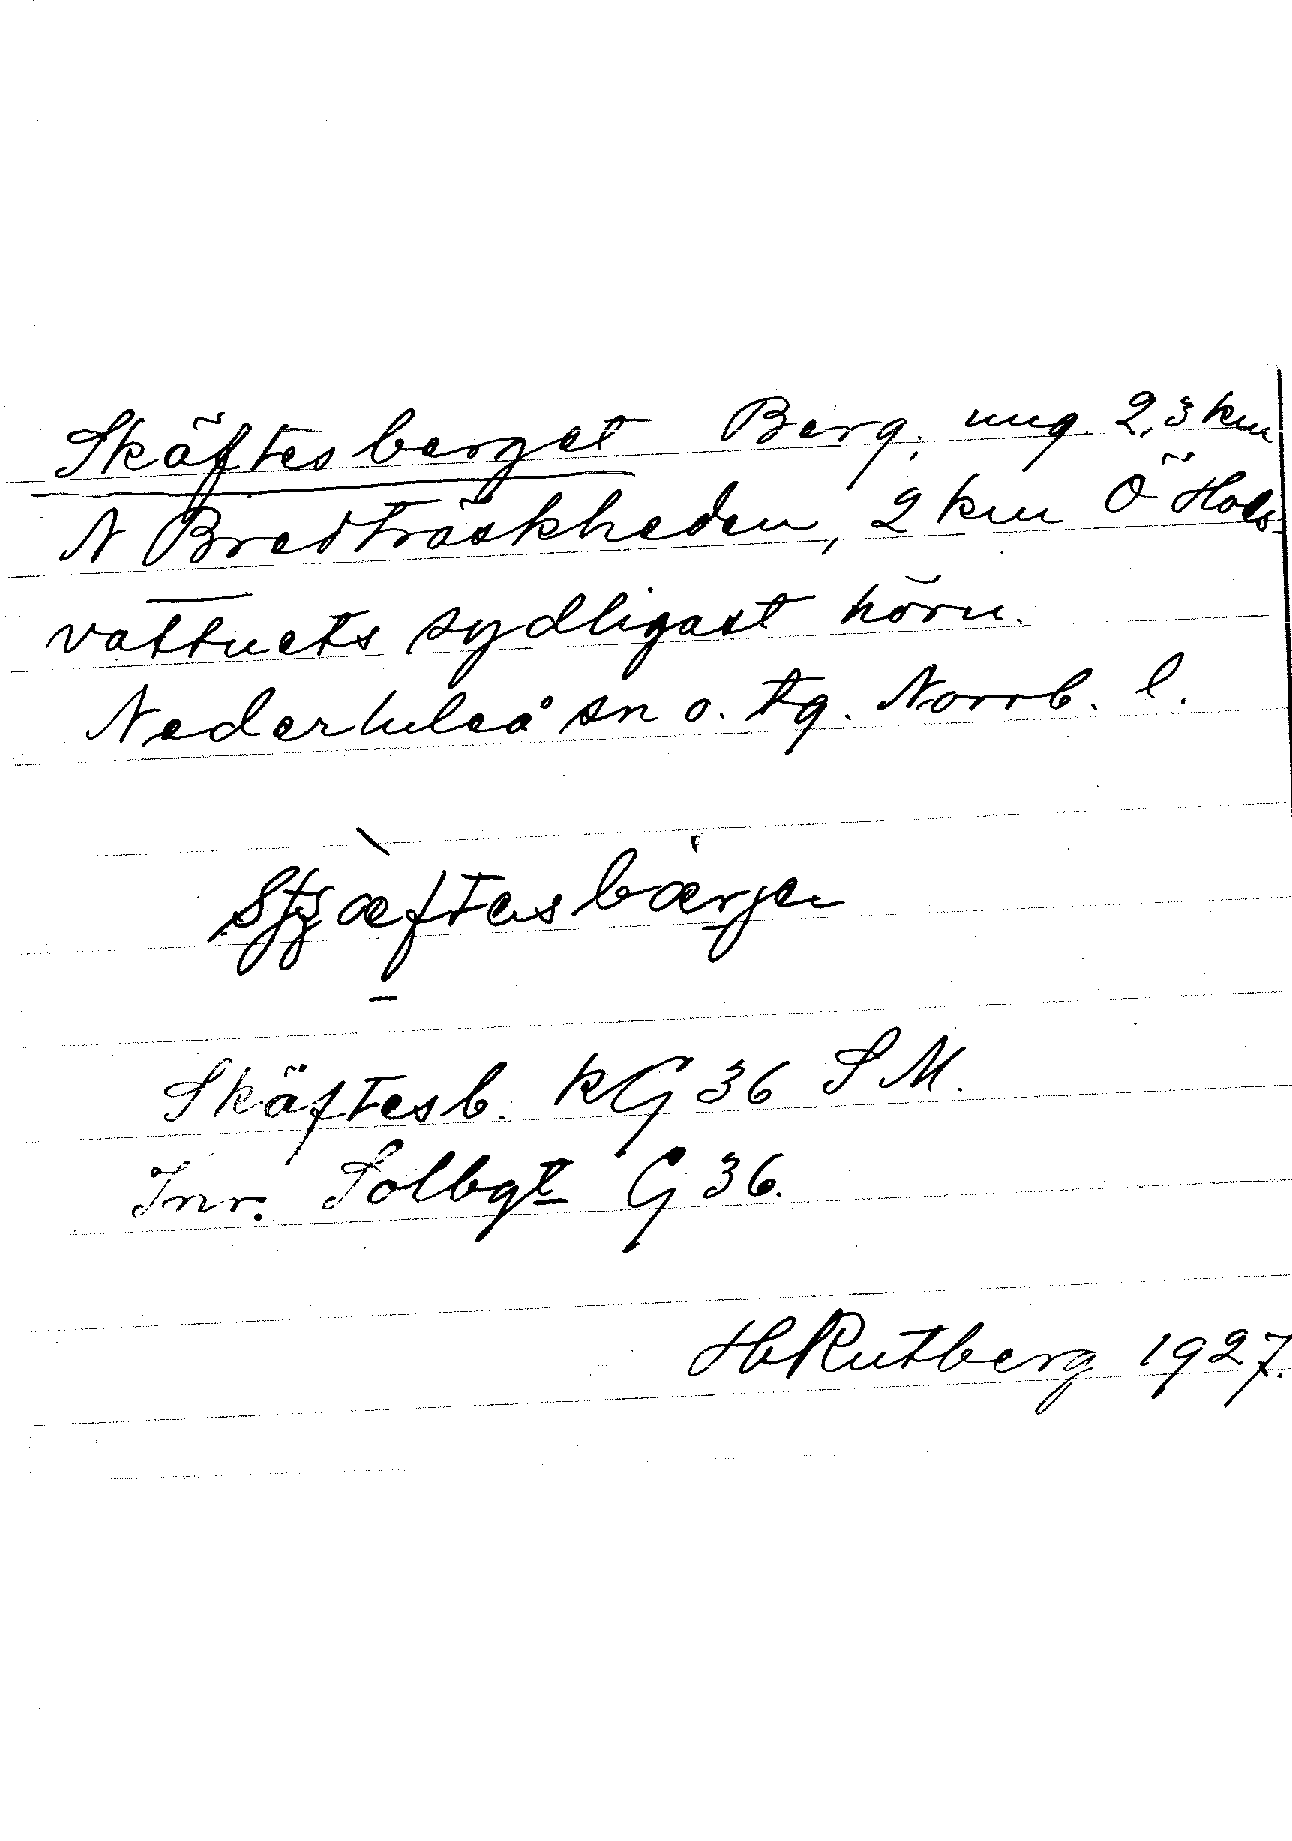 Skäftesberget Berg, ung. 2,3 km
N Bredträskheden, 2 km Ö Hols-
vattnets sydligast hörn.
Nederluleå sn o. tg. Norrb. l.
Skäftesb. KG 36 S M.
Inr. Solbgt G 36.
H Rutberg 1927.